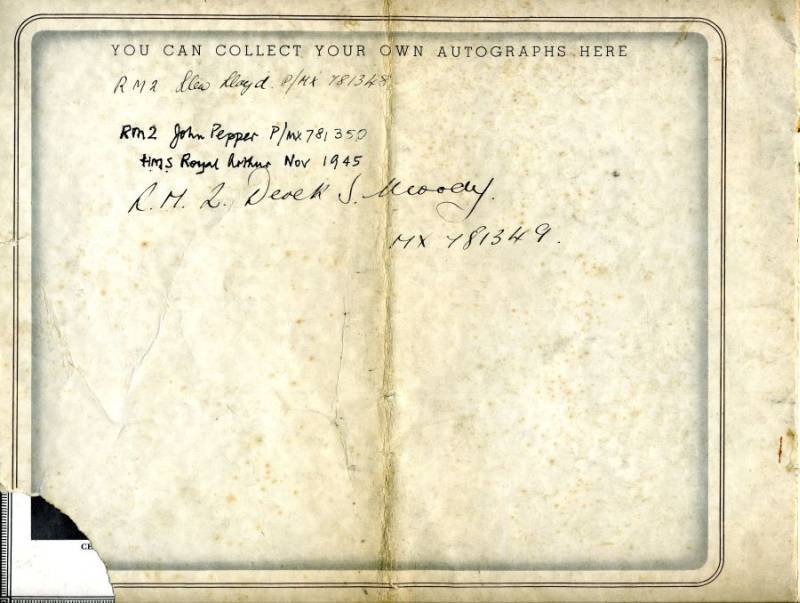 YOU CAN COLLECT YOUR OWN AUTOGRAPHS HERE
RM2 Lloyd. P/MX 781348
RM2 John Pepper P/MX 781350
HMS Royal Arthur Nov 1945
R.M. 2. Derek S. Moody.
MX 781349.